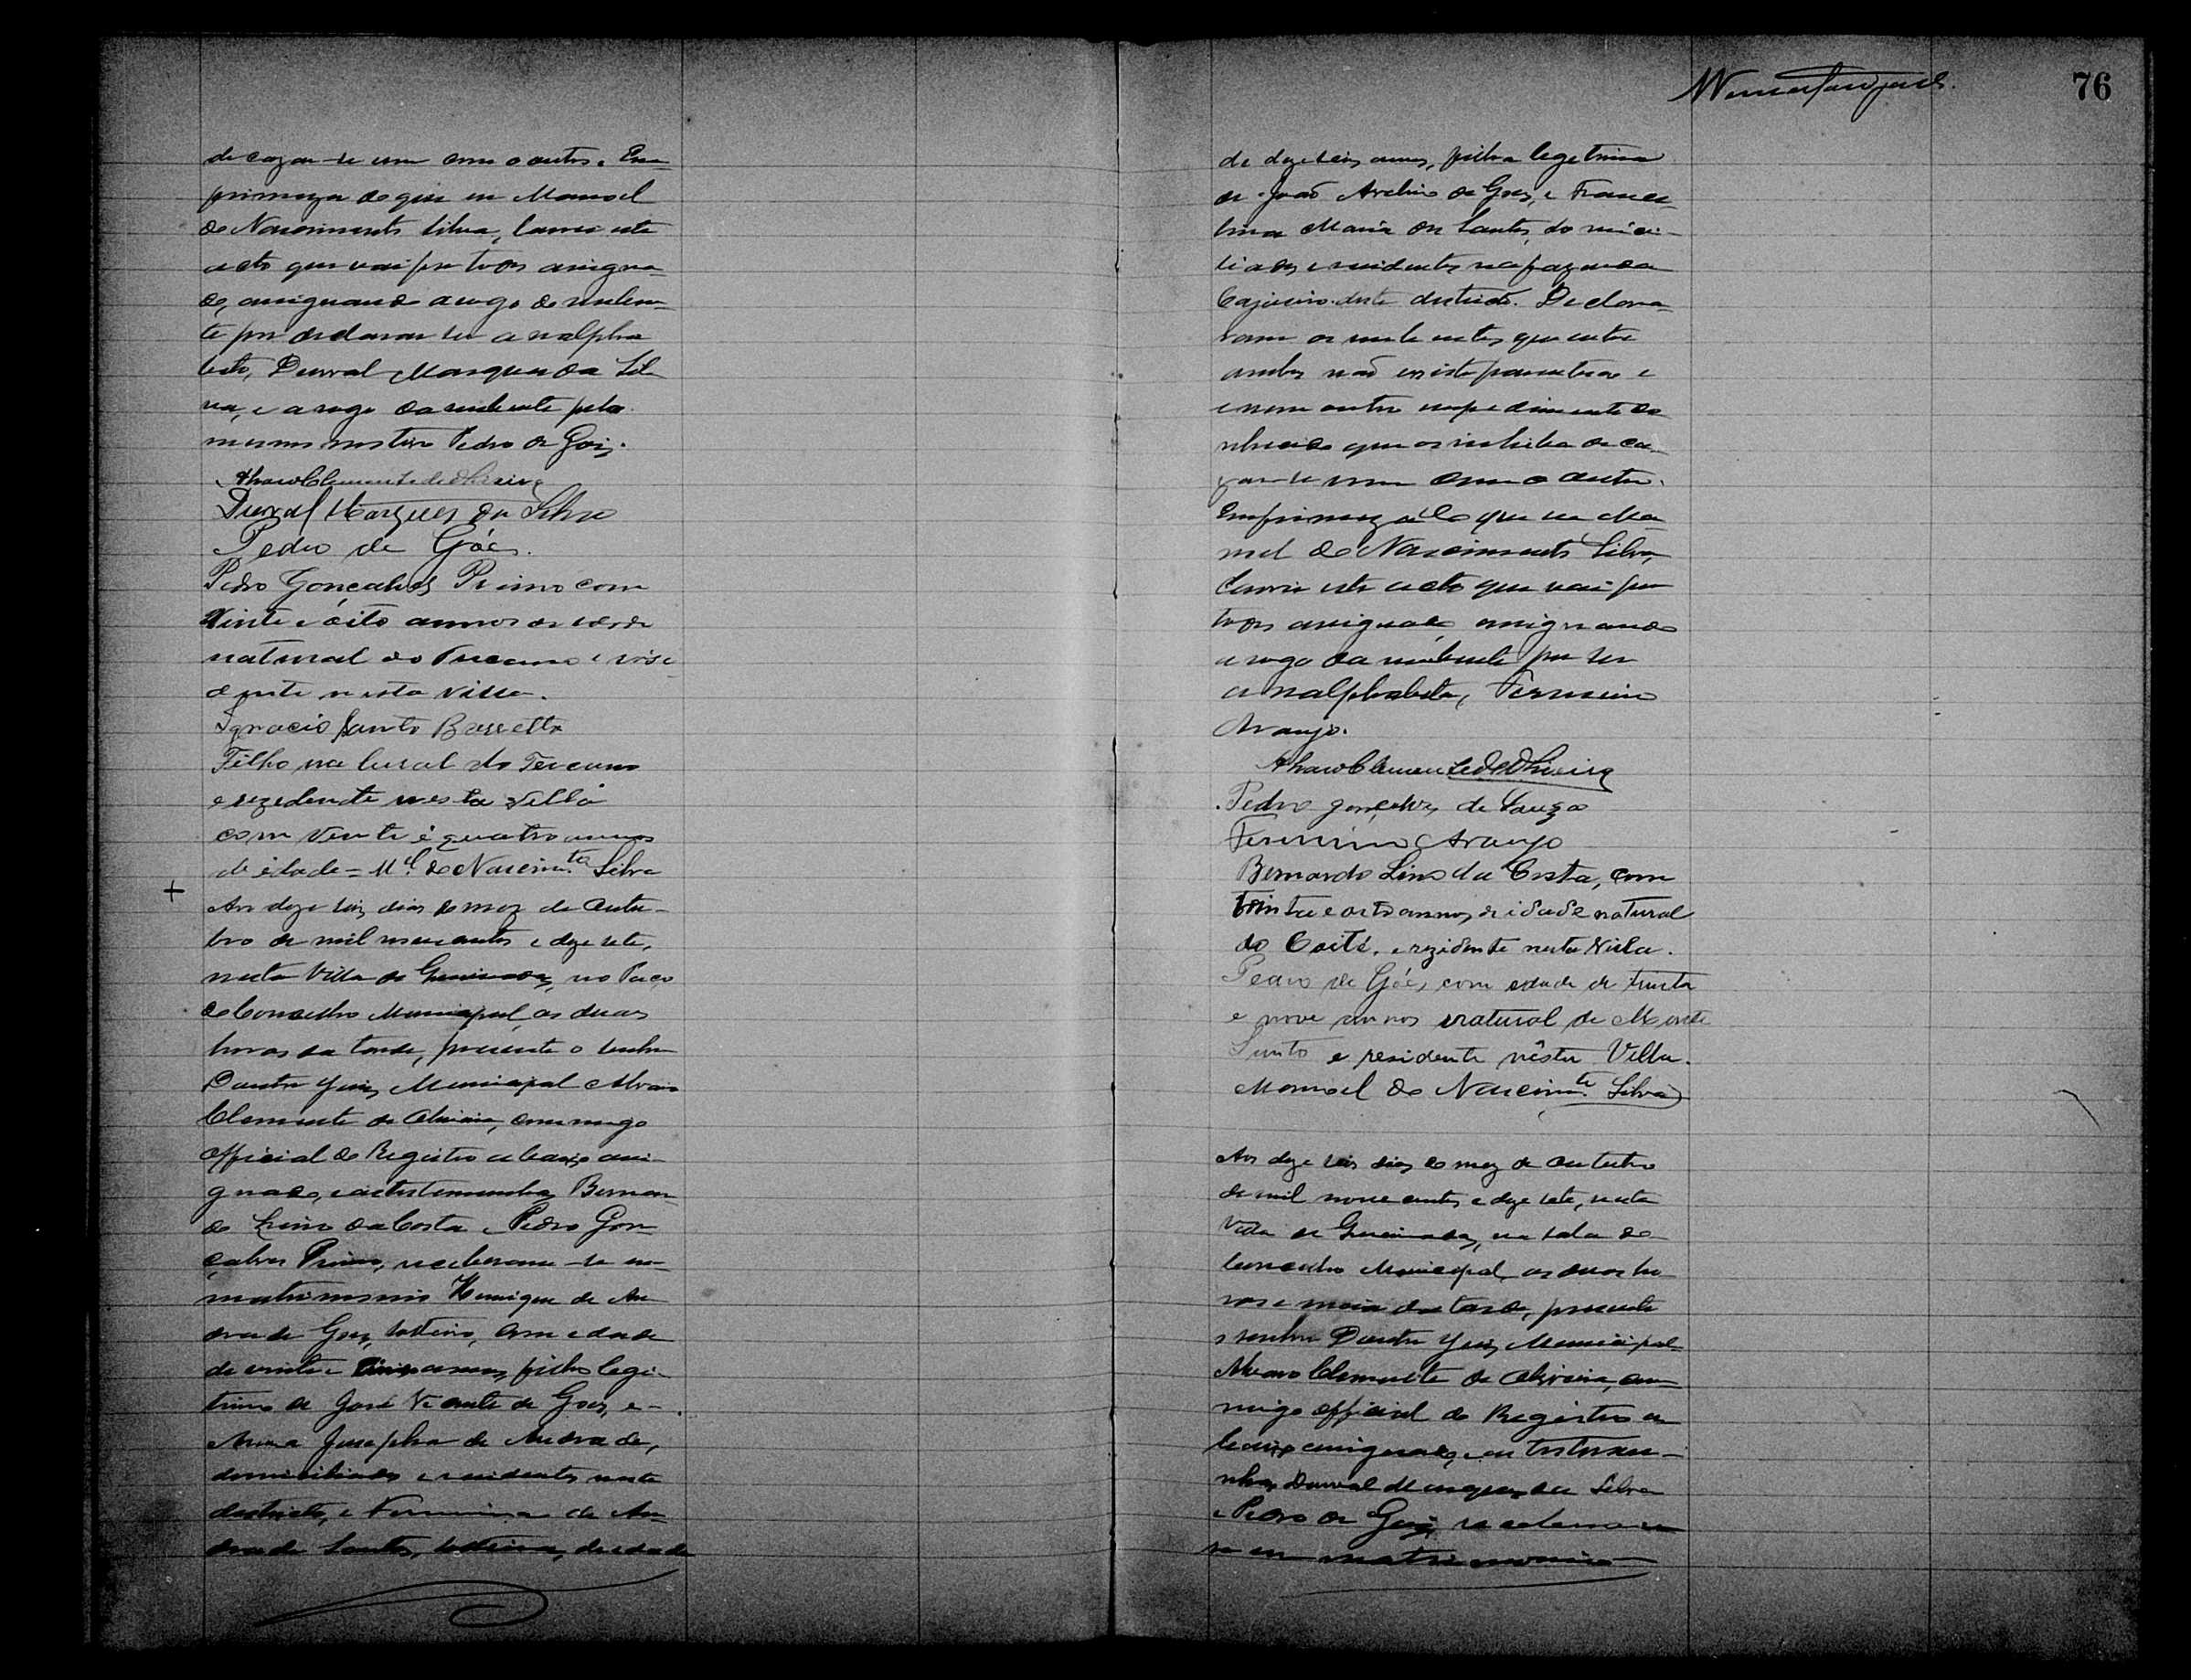 de cazar-se um com o outro. Em
firmeza do que eu Manoel
do Nascimento Silva, lavrei este
acto que vai por todos assigna-
do, assignando a rogo do nuben-
te por declarar ser analpha-
beto, Durval Marques da Sil-
va, e a rogo da nubente pelo
mesmo motivo Pedro de Góis.
Alvaro Clemente de Oliveira
Durval Marques da Silva
Pedro de Góes.
Pedro Gonçalves Primo com
Vinte e oito annos de idade
natural do Tucano e resi-
dente nesta villa.
Ignacio Santo Barretto
Filho natural do Tucano
e rezedente nesta Villa
com vente é quatro annos
de idade = Mel. do Nascimto. Silva
+ Aos dezeseis dias do mez de Outu-
bro de mil novecentos e dezesete,
nesta Villa de Queimadas, no Paço
do Conselho Municipal, as duas
horas da tarde, presente o senhor
Doutor Juiz Municipal Alvaro
Clemente de Oliveira, commigo
Official do Registro abaixo assi-
gnado, e as testemunhas Bernar-
do Lino da Costa e Pedro Gon-
çalves Primo, receberam-se em
matrimonio Henrique de An-
drade Goes, solteiro, com edade
de vinte e annos, filho legi-
timo de José Vicente de Goes, e
Anna Josepha de Andrade,
domiciliados e residentes neste
districto, e de An-
drade Santos, solteira, de edade
76
de dezeseis annos, filha legetima
de João Avelino de Goes, e Francel-
lina Maria dos Santos, domici-
liados e residentes na fazenda
Cajueiro deste districto. Declara-
ram os nubentes que entre
ambos não existe parentesco e
e nem outro impedimento co-
nhecido que os inhiba de ca-
zar-se um com o outro.
Em firmeza do que eu Ma-
noel do Nascimento Silva,
lavrei este acto que vai por
todos assignado, assignando
a rogo da nubente por ser
analphabeta, Firmino
Araujo.
Alvaro Clemente de Oliveira
Pedro gonçalves de Souza
Firmino Araujo
Bernardo Lino da Costa, com
trinta e oito annos, de idade natural
do Coité, e rezidente nesta Villa.
Pedro de Góes, com edade de trinta
e nove annos natural de Monte
Santo e residente nésta Villa.
Manoel do Nascimto. Silva
Aos dezeseis dias do mez de outubro
de mil novecentos e dezesete, nesta
Villa de Queimadas, na sala do
Conselho Municipal, as duas ho-
ras e meia da tarde, presente
o senhor Doutor Juiz Municipal
Alvaro Clemente de Oliveira, com-
migo official do Registro a-
baixo assignado, e as testemu-
nhas Durval Marques da Silva
e Pedro de Góis, receberam-
se em matrimonio